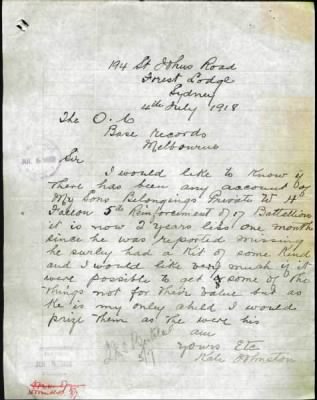 194 St Johns Road
Forest Lodge
Sydney
4th July 1918
The O. C
Base Records
Melbourne
Sir
I would like to know if
there has been any account of
My Sons Belongings Private W H
Falcon 5th Reinforcement of 17 Battellion
it is now 2 years less one month
since he was reported missing
he surley had a Kit of some kind
and I would like very much if it
were possible to get some of the
things not for their value but as
he is my only child I would
prize them as the were his
am
yours Etc
Kate Johnston